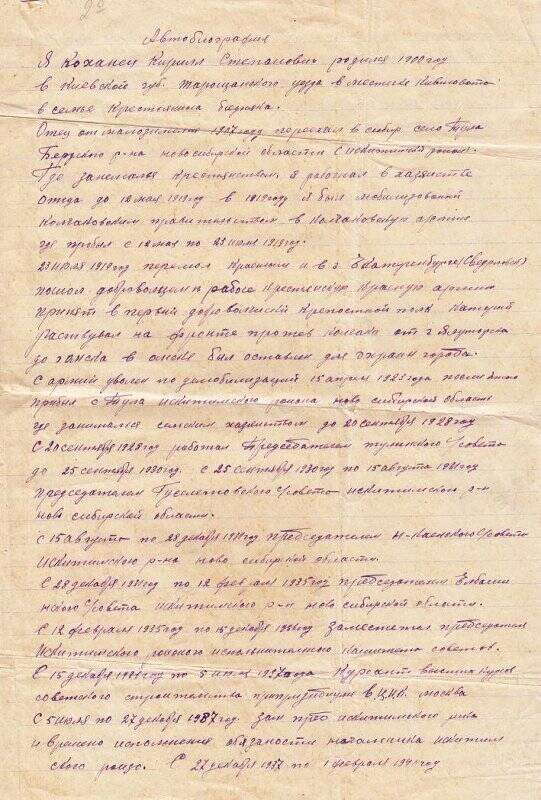 22
Автобиография
Я Коханец Кирилл Степанович родился 1900 году
в Киевской губ. Таращанского уезда в местике
в семье крестьянина бедняка.
Отец от малоземелия 1907 году переехал в сибир село Тула
Бердского р-на новосибирской области с искитимский район.
Где занемался крестьянством. я работал в хазяйстве
отца до 12 мая 1919го в 1919 году я был мобилизований
Колчаковским правительством в колчаковскую армию
где пробыл с 12 мая по 23 июля 1919 год.
23 июля 1919 год перешол к красным и в г. Екатиренбурге (Сведловск)
пошол добровольцем в рабоче крестенскую красную армию
принят в первий доровольский крепостной полк который
участвувал на фронте протев колчака от г. Ялуторска
до омска в омске был оставлен для охраны города.
С армий уволен по демобилизаций 15 апреля 1923 года после этого
прибил с Тула искитимского района ново сибирской области
где занимался селским хазяйством до 20 сентября 1928 год
С 20 сентября 1928 год работал председателем тулинского с/совета
до 25 сентября 1930 год. с 25 сентября 1930 год по 15 августа 1931 год
председателем Гуселетовского с/совета искитимского р-н
ново сибирской области.
с 15 августа по 28 декабря 1931 год председателем с/совета
искитимского р-на ново сибирской области.
С 28 декабря 1931 год по 12 февраля 1935 год председателем Елбаши
нского с/совета искитимского р-н ново сибирской области.
С 12 февраля 1935 год по 15 декабря 1936 год заместетел председателя
искитимского районого исполнителного камитета советов.
С 15 декабря 1936 год по 5 июля 1937 года Курсант высших курсов
советского строительства при В.Ц.И.К. москва
С 5 июля по 27 декабря 1937 год. зам пред искитимского рика
и времено исполнения обязаности началника искитим
ского райзо. С 27 декабря 1937 по 1 февраля 1941 год